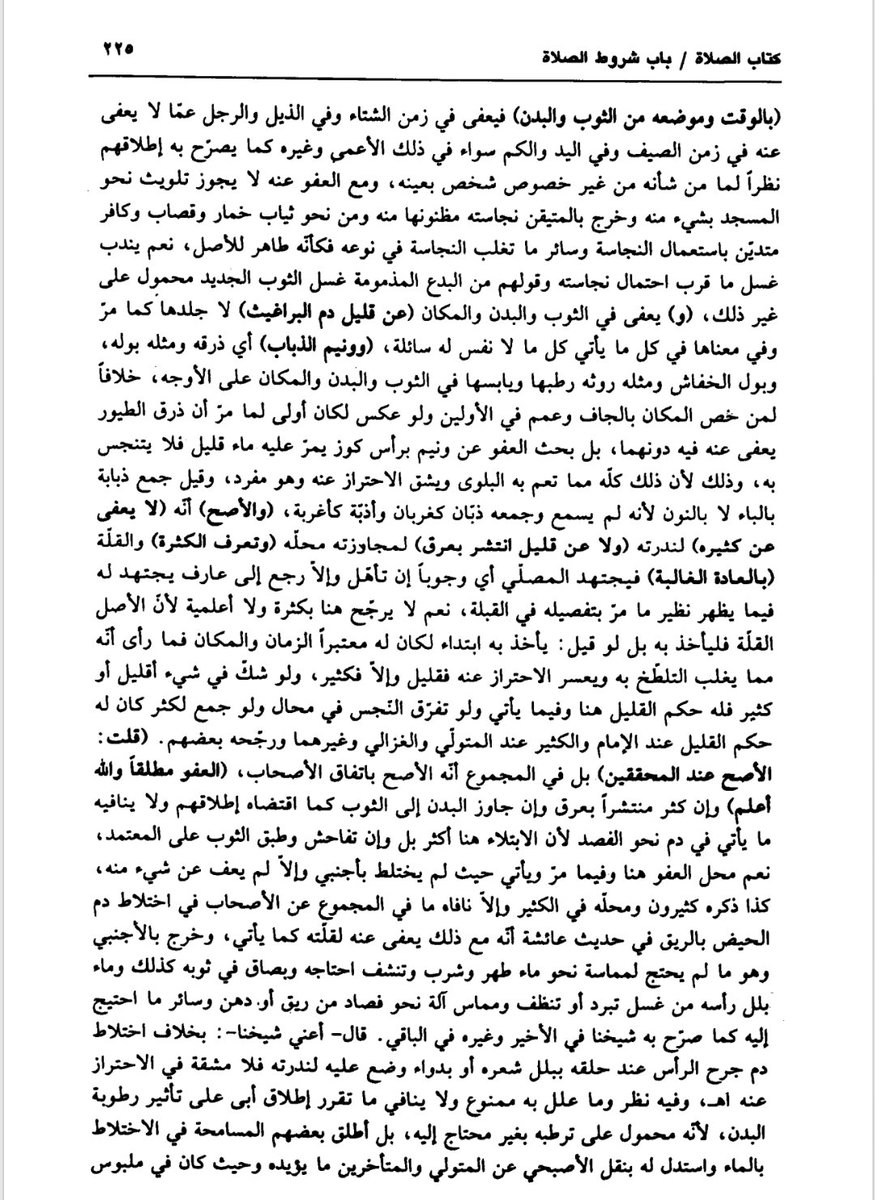 كتاب الصلاة / باب شروط الصلاة
٢٢٥
(بالوقت وموضعه من الثوب والبدن) فيعفى في زمن الشتاء وفي الذيل والرجل عمّا لا يعفى
عنه في زمن الصيف وفي اليد والكم سواء في ذلك الأعمى وغيره كما يصرّح به إطلاقهم
نظراً لما من شأنه من غير خصوص شخص بعينه، ومع العفو عنه لا يجوز تلويث نحو
المسجد بشيء منه وخرج بالمتيقن نجاسته مظنونها منه ومن نحو ثياب خمار وقصاب وكافر
متديّن باستعمال النجاسة وسائر ما تغلب النجاسة في نوعه فكأنّه طاهر للأصل، نعم يندب
غسل ما قرب احتمال نجاسته وقولهم من البدع المذمومة غسل الثوب الجديد محمول على
غير ذلك، (و) يعفى في الثوب والبدن والمكان (عن قليل دم البراغيث) لا جلدها كما مرّ
وفي معناها في كل ما يأتي كل ما لا نفس له سائلة، (وونيم الذباب) أي ذرقه ومثله بوله،
وبول الخفاش ومثله روثه رطبها ويابسها في الثوب والبدن والمكان على الأوجه، خلافاً
لمن خص المكان بالجاف وعمم في الأولين ولو عكس لكان أولى لما مرّ أن ذرق الطيور
يعفى عنه فيه دونهما، بل بحث العفو عن ونيم برأس كوز يمرّ عليه ماء قليل فلا يتنجس
به، وذلك لأن ذلك كلّه مما تعم به البلوى ويشق الاحتراز عنه وهو مفرد، وقيل جمع ذبابة
بالباء لا بالنون لأنه لم يسمع وجمعه ذبّان كغربان وأذبّة كأغربة، (والأصح) أنّه (لا يعفى
عن كثيره) لندرته (ولا عن قليل انتشر بعرق) لمجاوزته محلّه (وتعرف الكثرة) والقلّة
(بالعادة الغالبة) فيجتهد المصلّي أي وجوباً إن تأهّل وإلاّ رجع إلى عارف يجتهد له
فيما يظهر نظير ما مرّ بتفصيله في القبلة، نعم لا يرجّح هنا بكثرة ولا أعلمية لأنّ الأصل
القلّة فليأخذ به بل لو قيل: يأخذ به ابتداء لكان له معتبراً الزمان والمكان فما رأى أنّه
مما يغلب التلطّخ به ويعسر الاحتراز عنه فقليل وإلاّ فكثير، ولو شكّ في شيء أقليل أو
كثير فله حكم القليل هنا وفيما يأتي ولو تفرّق النّجس في محال ولو جمع لكثر كان له
حكم القليل عند الإمام والكثير عند المتولّي والغزالي وغيرهما ورجّحه بعضهم. (قلت:
الأصح عند المحققين) بل في المجموع أنّه الأصح باتفاق الأصحاب، (العفو مطلقاً والله
أعلم) وإن كثر منتشراً بعرق وإن جاوز البدن إلى الثوب كما اقتضاه إطلاقهم ولا ينافيه
ما يأتي في دم نحو الفصد لأن الابتلاء هنا أكثر بل وإن تفاحش وطبق الثوب على المعتمد،
نعم محل العفو هنا وفيما مرّ ويأتي حيث لم يختلط بأجنبي وإلاّ لم يعف عن شيء منه،
كذا ذكره كثيرون ومحلّه في الكثير وإلاّ نافاه ما في المجموع عن الأصحاب في اختلاط دم
الحيض بالريق في حديث عائشة أنّه مع ذلك يعفى عنه لقلّته كما يأتي، وخرج بالأجنبي
وهو ما لم يحتج لمماسة نحو ماء طهر وشرب وتنشف احتاجه وبصاق في ثوبه كذلك وماء
بلل رأسه من غسل تبرد أو تنظف ومماس آلة نحو فصاد من ريق أو دهن وسائر ما احتيج
إليه كما صرّح به شيخنا في الأخير وغيره في الباقي. قال- أعني شيخنا-: بخلاف اختلاط
دم جرح الرأس عند حلقه ببلل شعره أو بدواء وضع عليه لندرته فلا مشقة في الاحتراز
عنه اهـ، وفيه نظر وما علل به ممنوع ولا ينافي ما تقرر إطلاق أبى على تأثير رطوبة
البدن، لأنّه محمول على ترطبه بغير محتاج إليه، بل أطلق بعضهم المسامحة في الاختلاط
بالماء واستدل له بنقل الأصبحي عن المتولي والمتأخرين ما يؤيده وحيث كان في ملبوس